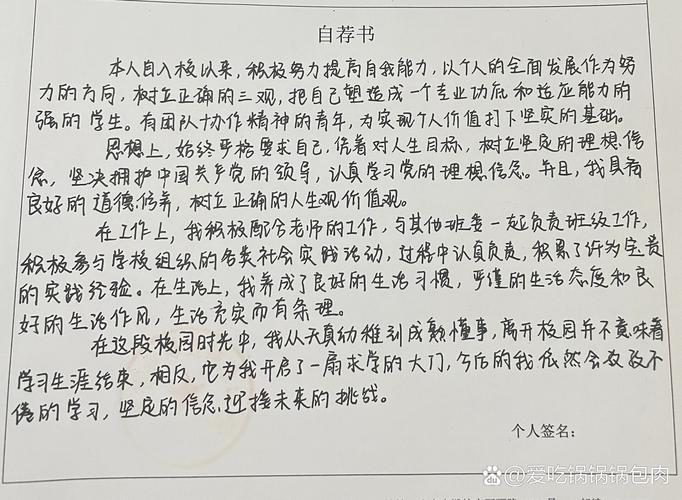 自荐书
本人自入校以来，积极努力提高自我能力，以个人的全面发展作为努
力的方向，树立正确的三观，把自己塑造成一个专业功底和适应能力的
强的学生。有团队协作精神的青年，为实现个人价值打下坚实的基础。
思想上，始终严格要求自己，信着对人生目标，树立坚定的理想信
念，坚决拥护中国共产党的领导，认真学习党的理想信念。并且，我具有
良好的道德修养，树立正确的人生观价值观。
在工作上，我积极配合老师的工作，与其他班委一起负责班级工作，
积极参与学校组织的各类社会实践活动，过程中认真负责，积累了许为宝贵
的实践经验。在生活上，我养成了良好的生活习惯，严谨的生活态度和良
好的生活作风，生活充实而有条理。
在这段校园时光中，我从天真幼稚到成熟懂事，离开校园并不意味着
学习生涯结束，相反，它为我开启了一扇求学的大门，今后的我依然会孜孜不
倦的学习，坚定的信念迎接未来的挑战。
个人签名：
@爱吃锅锅锅包肉